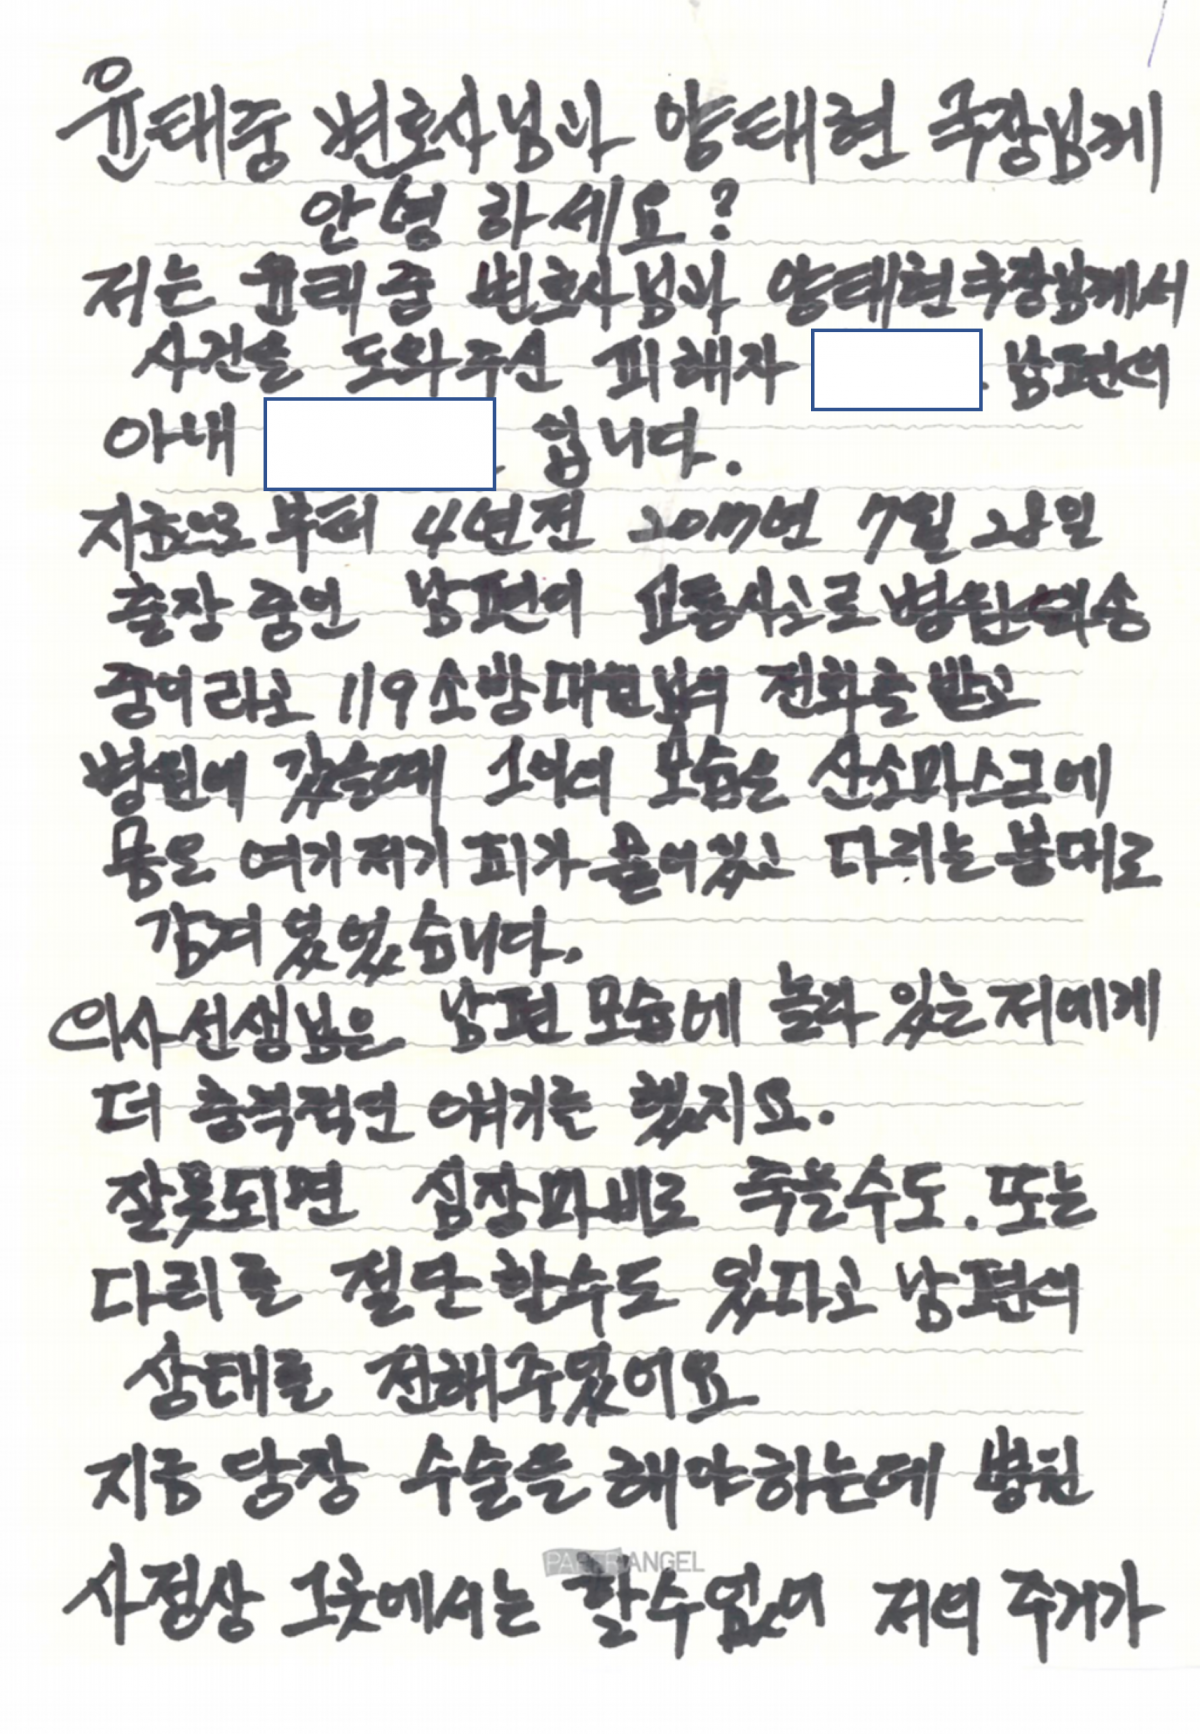 윤태중 변호사님과 양태현 국장님께
안녕 하세요?
저는 윤태중 변호사님과 양태현국장님께서
사건을 도와주신 피해자 남편의
아내 입니다.
지금으로 부터 4년전 2017년 7월 28일
출장 중인 남편이 교통사고로 병원이송
중이라고 119소방대원님의 전화를 받고
병원에 갔을때 그이의 모습은 산소마스크에
몸은 여기저기 피가 물어있고 다리는 붕대로
감겨 있었습니다.
의사선생님은 남편 모습에 놀라 있는 저에게
더 충격적인 얘기를 했지요.
잘못되면 심장마비로 죽을수도. 또는
다리를 절단할수도 있다고 남편의
상태를 전해주었어요
지금 당장 수술을 해야하는데 병원
사정상 그곳에서는 할수없어 저의 주거가
PAPER ANGEL